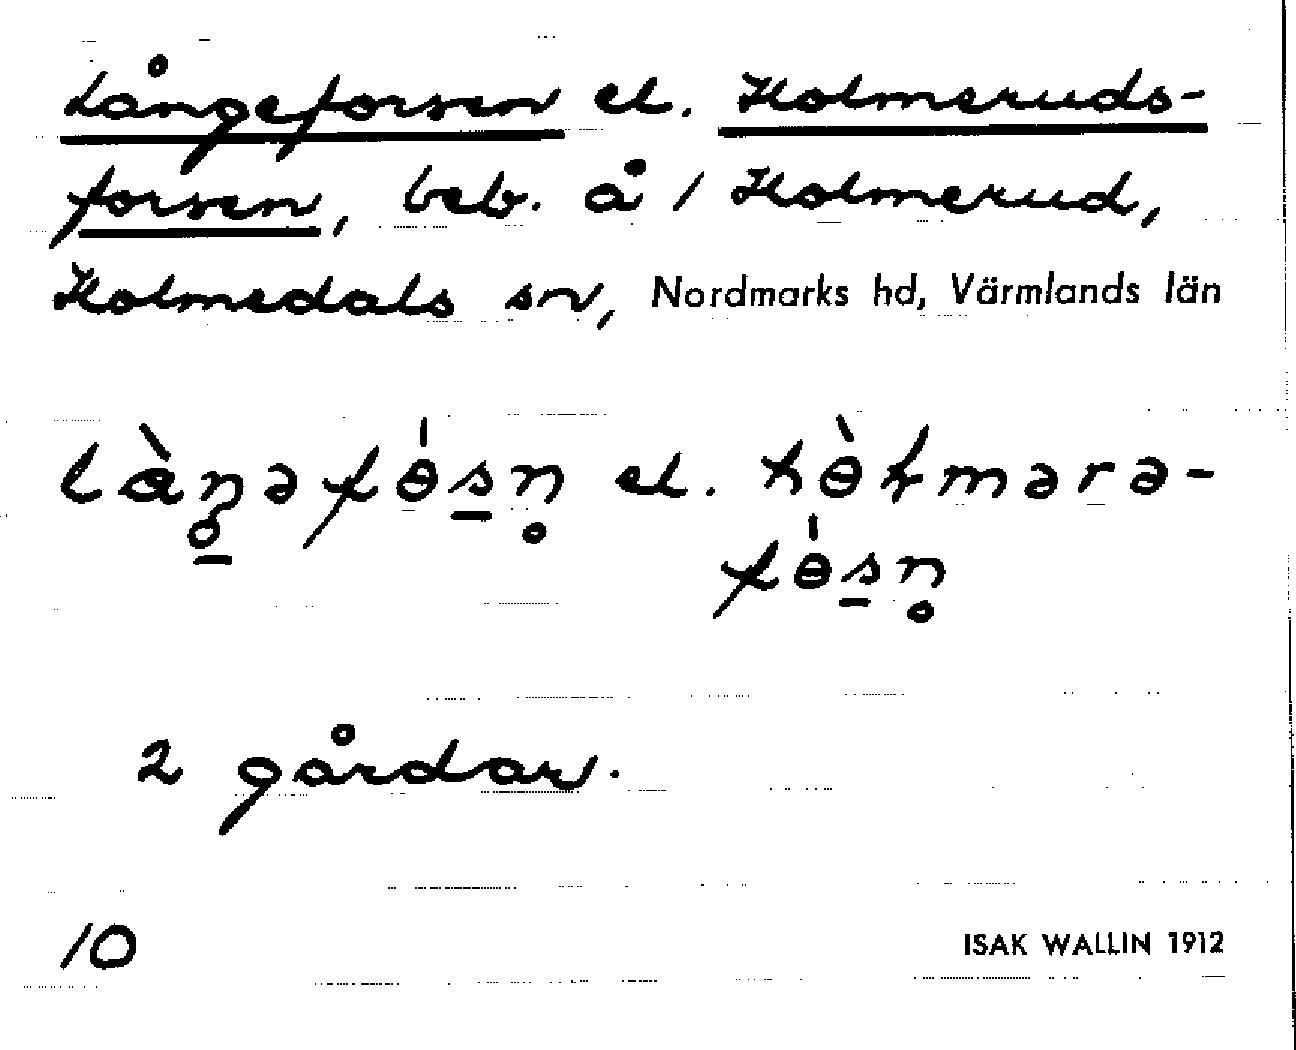 Långeforsen el. Holmeruds-
forsen, beb. å 1 Holmerud,
Holmedals sn, Nordmarks hd, Värmlands län
el.
2 gårdar.
10
ISAK WALLIN 1912